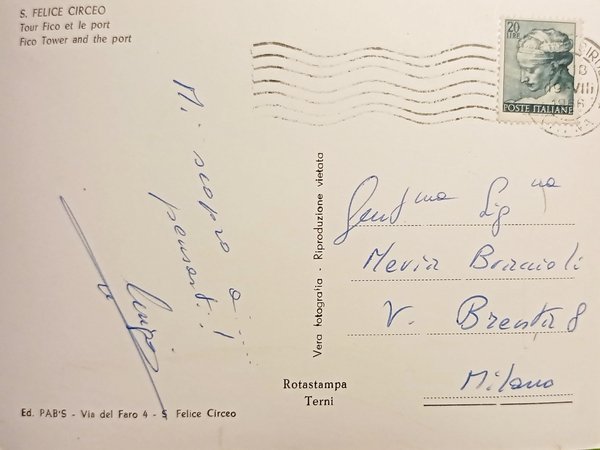 S. FELICE CIRCEO
Tour Fico et le port
Fico Tower and the port
20
LIRE
POSTE ITALIANE
18
VIII
Mi scopro a.....
pensarti..!
Luigi
Vera fotografia - Riproduzione vietata
Gent.ma Sig.na
Mevia
V. Brenta 8
Milano
Rotastampa
Terni
Ed. PAB'S - Via del Faro 4 - S. Felice Circeo